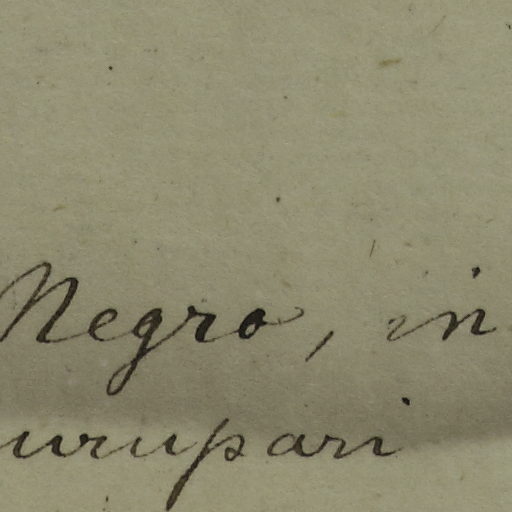 Negro, in
urupari